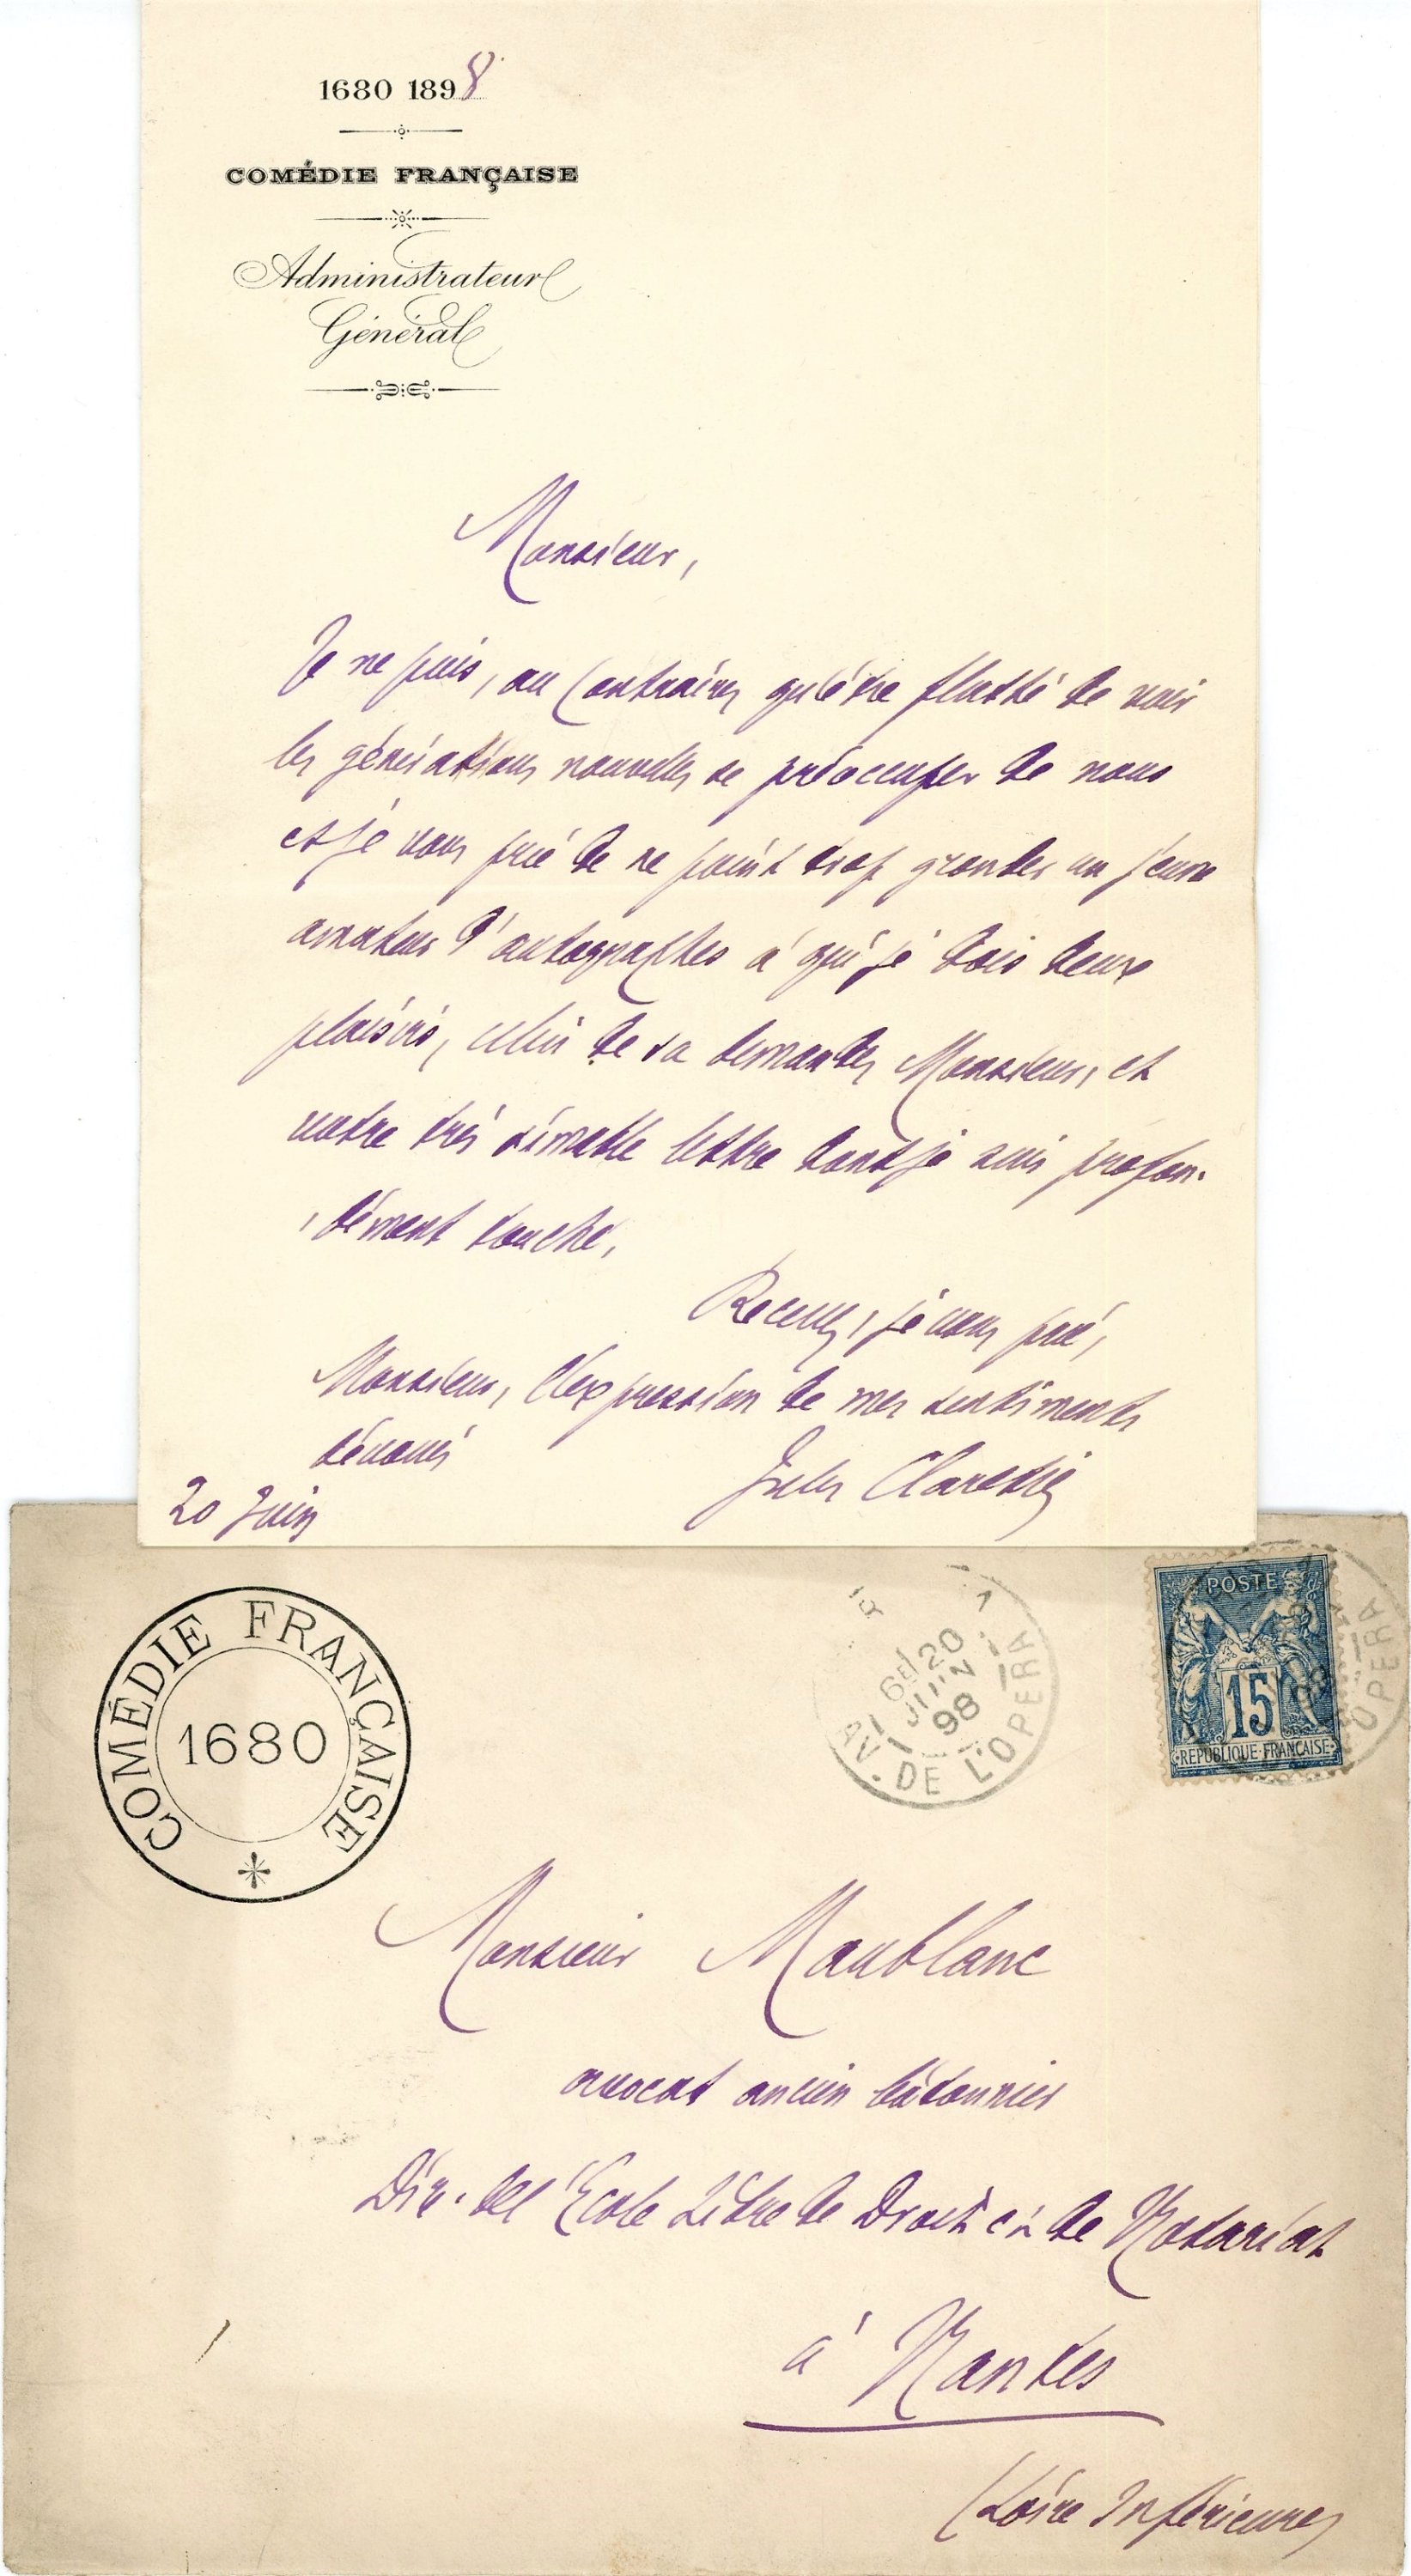 1680 1898
COMÉDIE FRANÇAISE
Administrateur
Général
Monsieur,
Je ne puis, au contraire, qu'être flatté de voir
les générations nouvelles se préoccuper de nous
et je vous prie de ne point trop gronder un jeune
amateur d'autographes à qui je dois deux
plaisirs, celui de sa demande, Monsieur, et
votre très aimable lettre dont je suis profon-
dément touché.
Recevez, je vous prie,
Monsieur, l'expression de mes sentiments
dévoués
Jules Claretie
20 Juin
COMÉDIE FRANÇAISE
1680
6E 20
JUIN
98
AV. DE L'OPERA
POSTE
15
REPUBLIQUE FRANÇAISE
OPERA
Monsieur Maublanc
avocat ancien bâtonnier
Dir. de l'Ecole Libre de Droit et de Notariat
à Nantes
(Loire Inférieure)